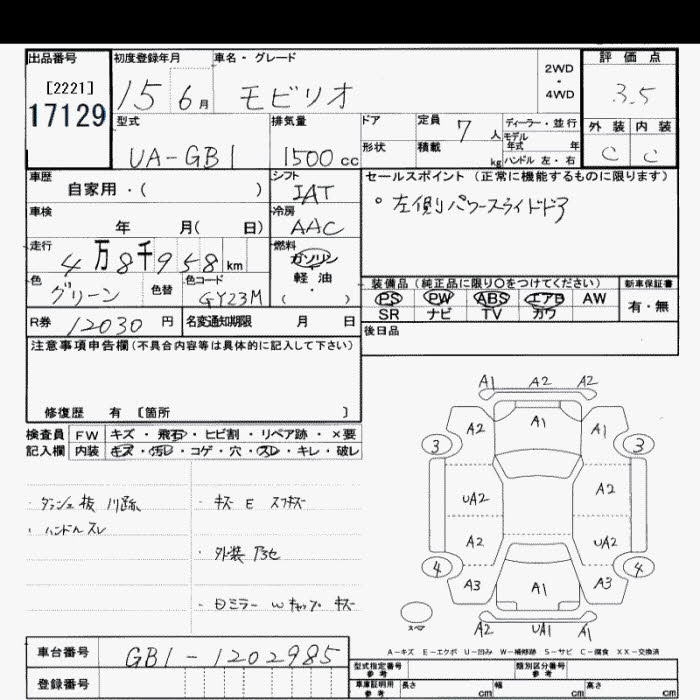 出品番号
[2221]
17129
初度登録年月
15 6月
車名・グレード
モビリオ
2WD
・
4WD
評価点
3.5
外装 内装
C C
型式
UA-GB1
排気量
1500cc
ドア
形状
定員 7 人
積載 kg
ディーラー・並行
モデル
年式 年
ハンドル 左・右
車歴
自家用・( )
シフト
IAT
セールスポイント (正常に機能するものに限ります)
○ 左側パワースライドドア
車検
年 月( 日)
冷房
AAC
走行
4万8千958km
燃料
ガソリン
軽・油
( ・ )
色
グリーン
色替
色コード
GY23M
装備品(純正品に限り○をつけてください)
PS PW ABS エアB AW
SR ナビ TV カワ
新車保証書
有・無
R券 12030 円
名変通知期限 月 日
後日品
注意事項申告欄(不具合内容等は具体的に記入して下さい)
修復歴 有 〔箇所 〕
検査員
記入欄
FW キズ・飛石・ヒビ割・リペア跡・×要
内装 キズ・汚レ・コゲ・穴・スレ・キレ・破レ
・ハンドルスレ
・キズ E スリキズ
・外装
ミラー Wキャップ キズ
A1 A2 A2
A2 A1 A1
3 3
UA2 A2
A2 UA2
4 4
A3 A1 A3
スペア
A2 UA1 A1
A-キズ E-エクボ U-凹み W-補修跡 S-サビ C-腐食 XX-交換済
車台番号
GB1-1202985
登録番号
型式指定番号
参考
類別区分番号
参考
車庫証明用
参考
長さ cm 幅 cm 高さ cm